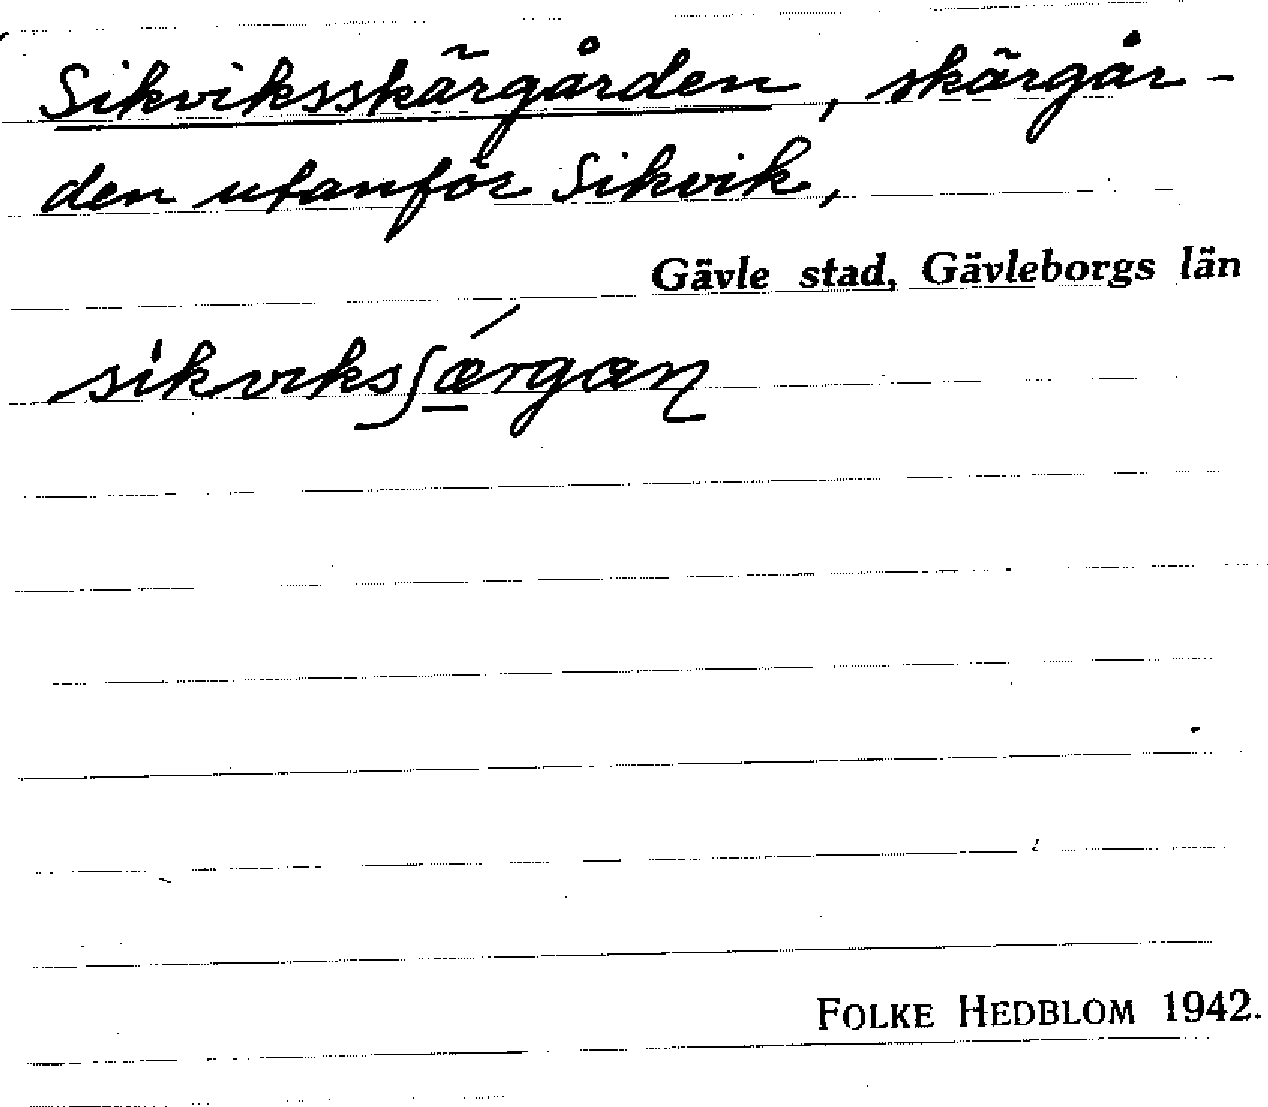 Sikviksskärgården, skärgår-
den utanför Sikvik,
Gävle stad, Gävleborgs län
sikviksʃǽ̲rgan
FOLKE HEDBLOM 1942.